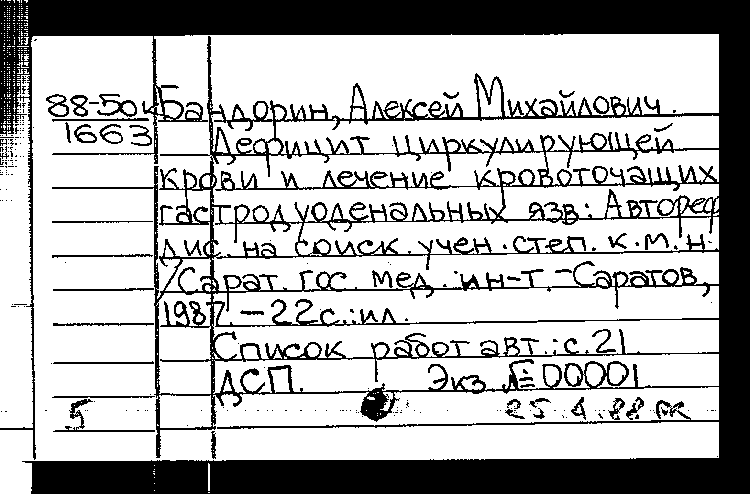 88-50к Бандорин, Алексей Михайлович.
1663 Дефицит циркулирующей
крови и лечение кровоточащих
гастродуоденальных язв: Автореф
дис. на соиск. учен. степ. к.м.н.
/Сарат. гос. мед. ин-т. -Саратов,
1987. -22с.:ил.
Список работ авт.: с.21
ДСП. Экз №00001
5 25.4.88